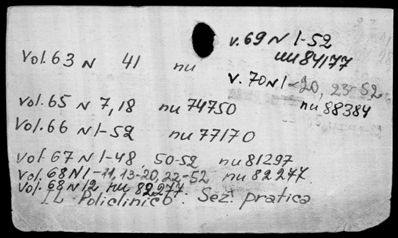 v.69 N 1-52
nu 84177
Vol.63 N 41 nu
v.70 N 1-20, 23-52
nu 88384
Vol.65 N 7,18 nu 74750
Vol.66 N 1-52 nu 77170
Vol.67 N 1-48, 50-52 nu 81297
Vol.68 N 1-11, 13-20, 22-52 nu 82277.
Vol.68 N 12, nu 82277
IL Policlinico. Sez. pratica